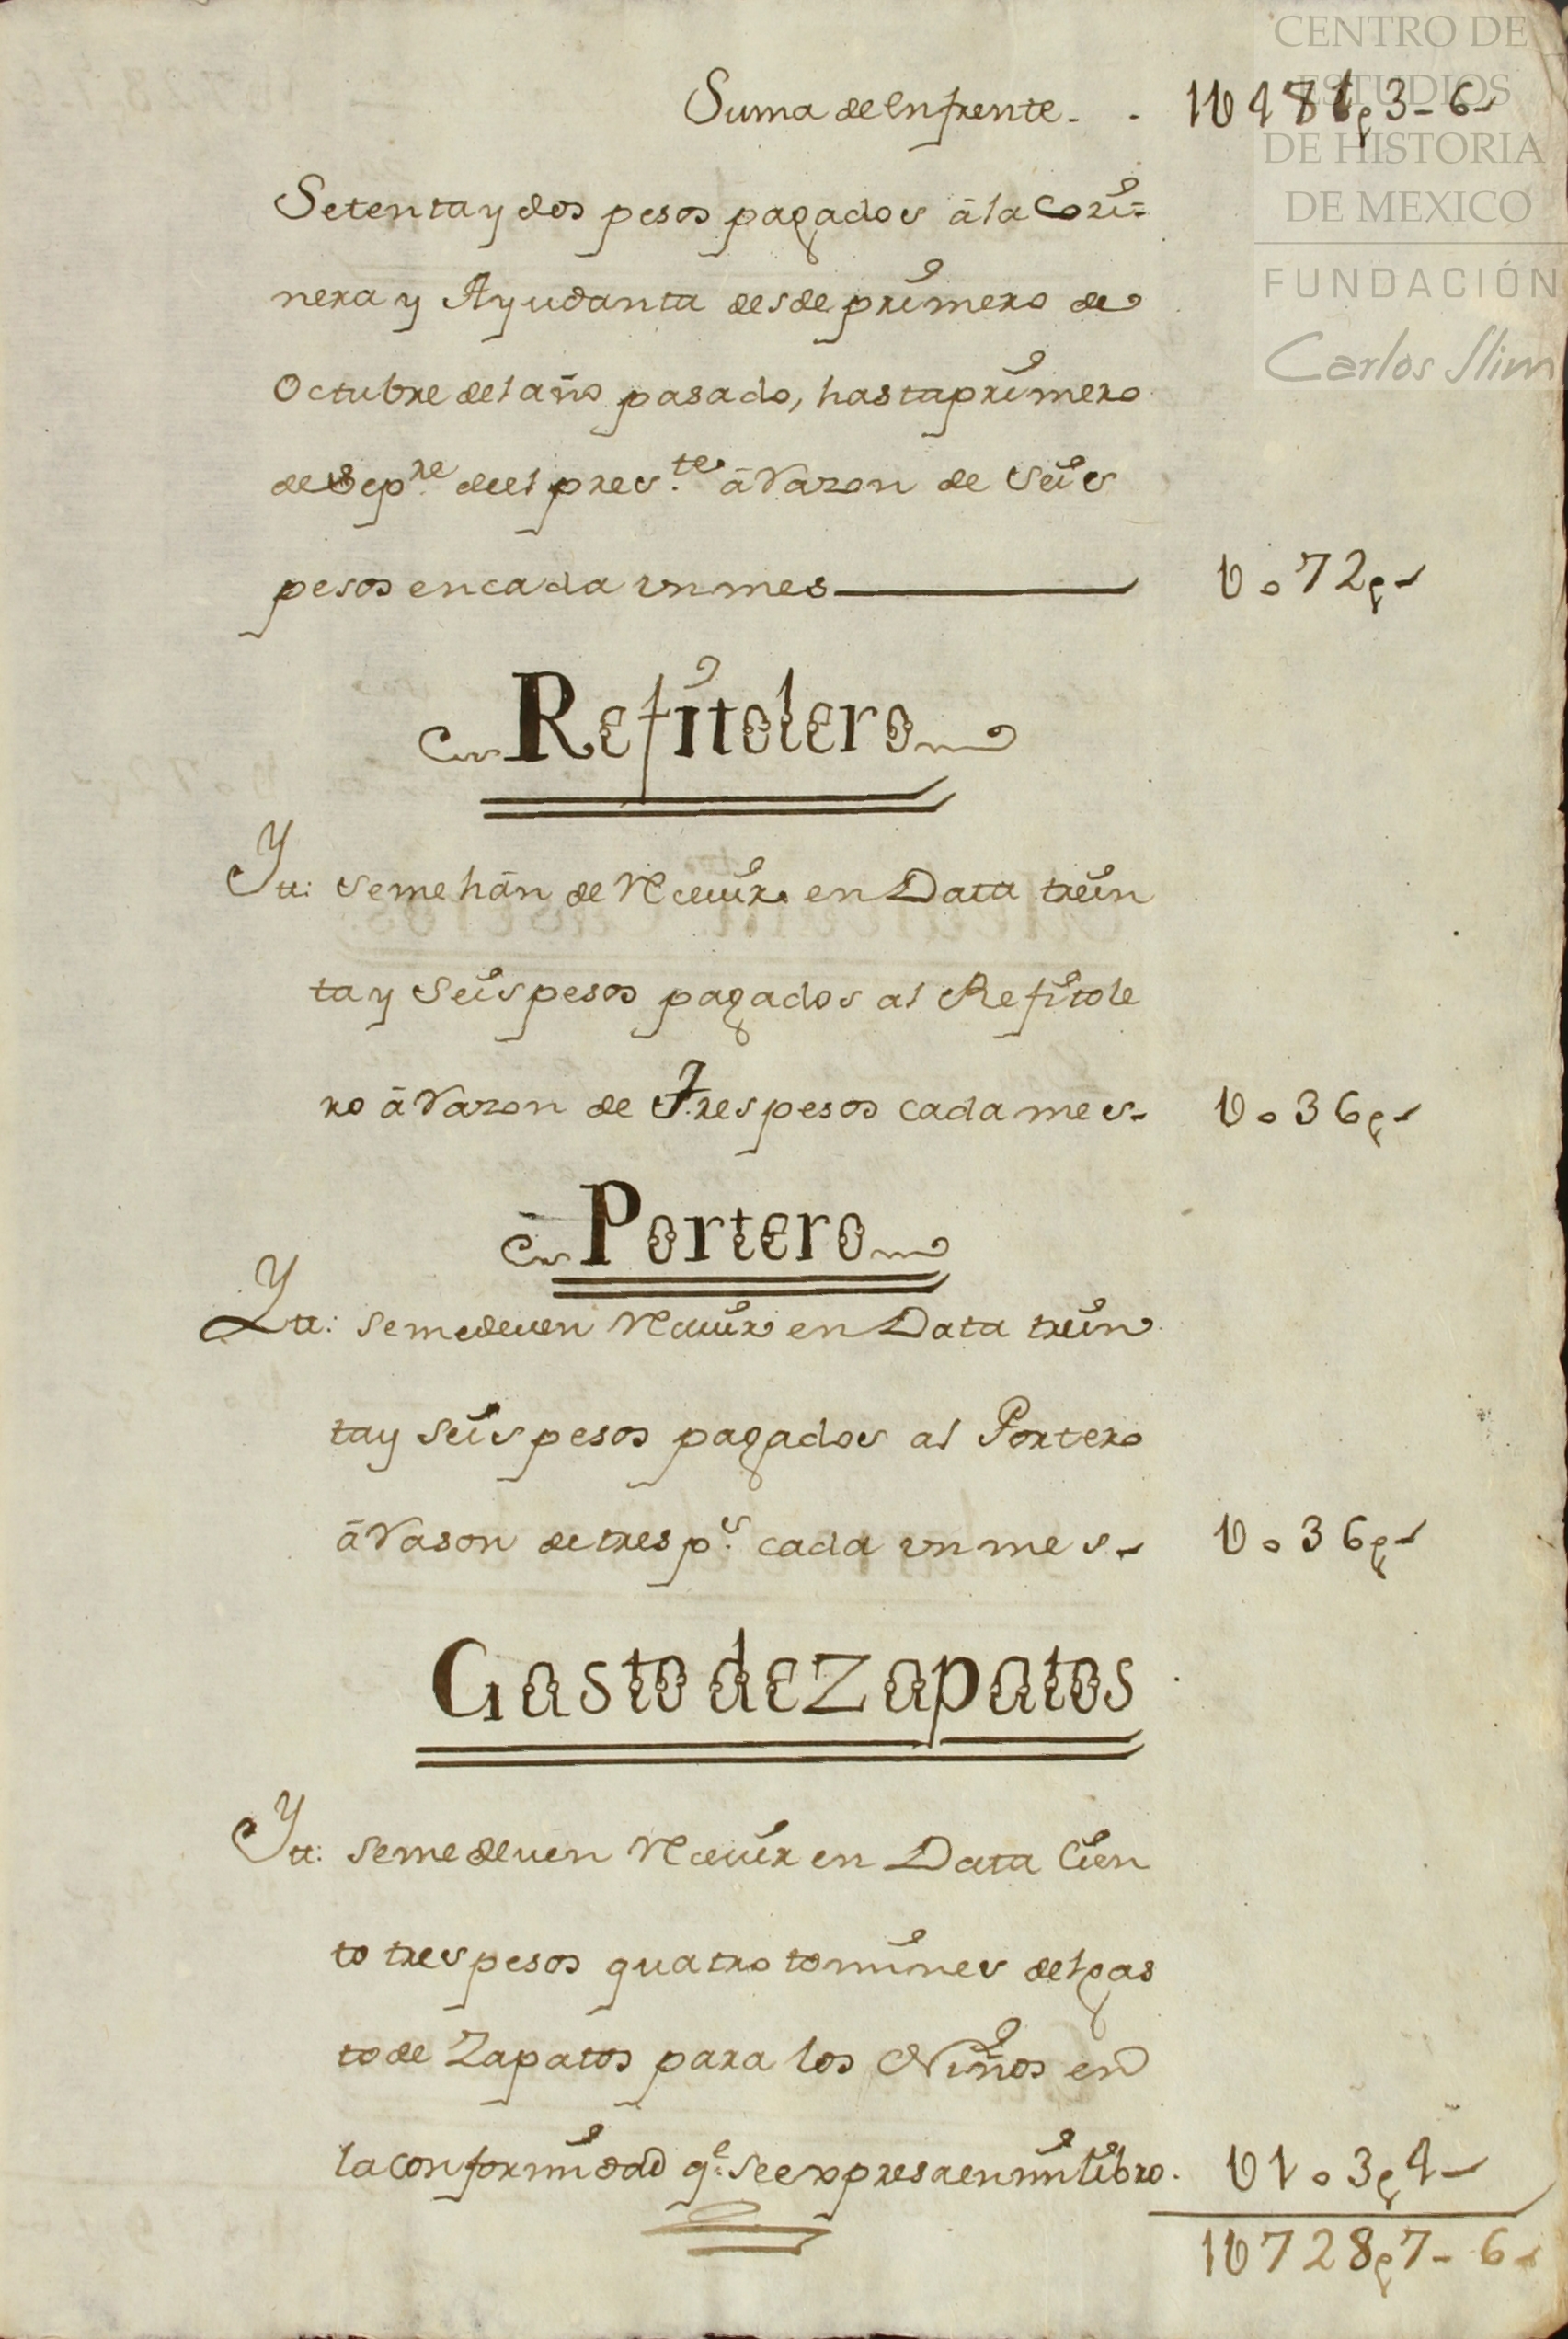 CENTRO DE
ESTUDIOS
DE HISTORIA
DE MEXICO
FUNDACIÓN
Carlos Slim
Suma de enfrente - - 1U481p3-6-
Setenta y dos pesos pagados â la Cozi=
nera y Ayudanta desde primero de
Octubre del año pasado, hasta primero
de Sepre. deel preste. â razon de seis
pesos en cada un mes U072p-
Refitolero
Ytt: se me hân de recivir en Data trein
ta y seis pesos pagados al Refitole
ro â razon de Tres pesos cada mes- U036p-
Portero
Ytt: se me deven recivir en Data trein
ta y seis pesos pagados al Portero
â rason de tres ps. cada un mes- U036p-
Gasto de Zapatos
Ytt: se me deven recevir en Data Cien
to tres pesos quatro tomines del gas
to de Zapatos para los Niños en
la conformidad qe. se expresa en mi libro. U103p4-
1U728p7-6-